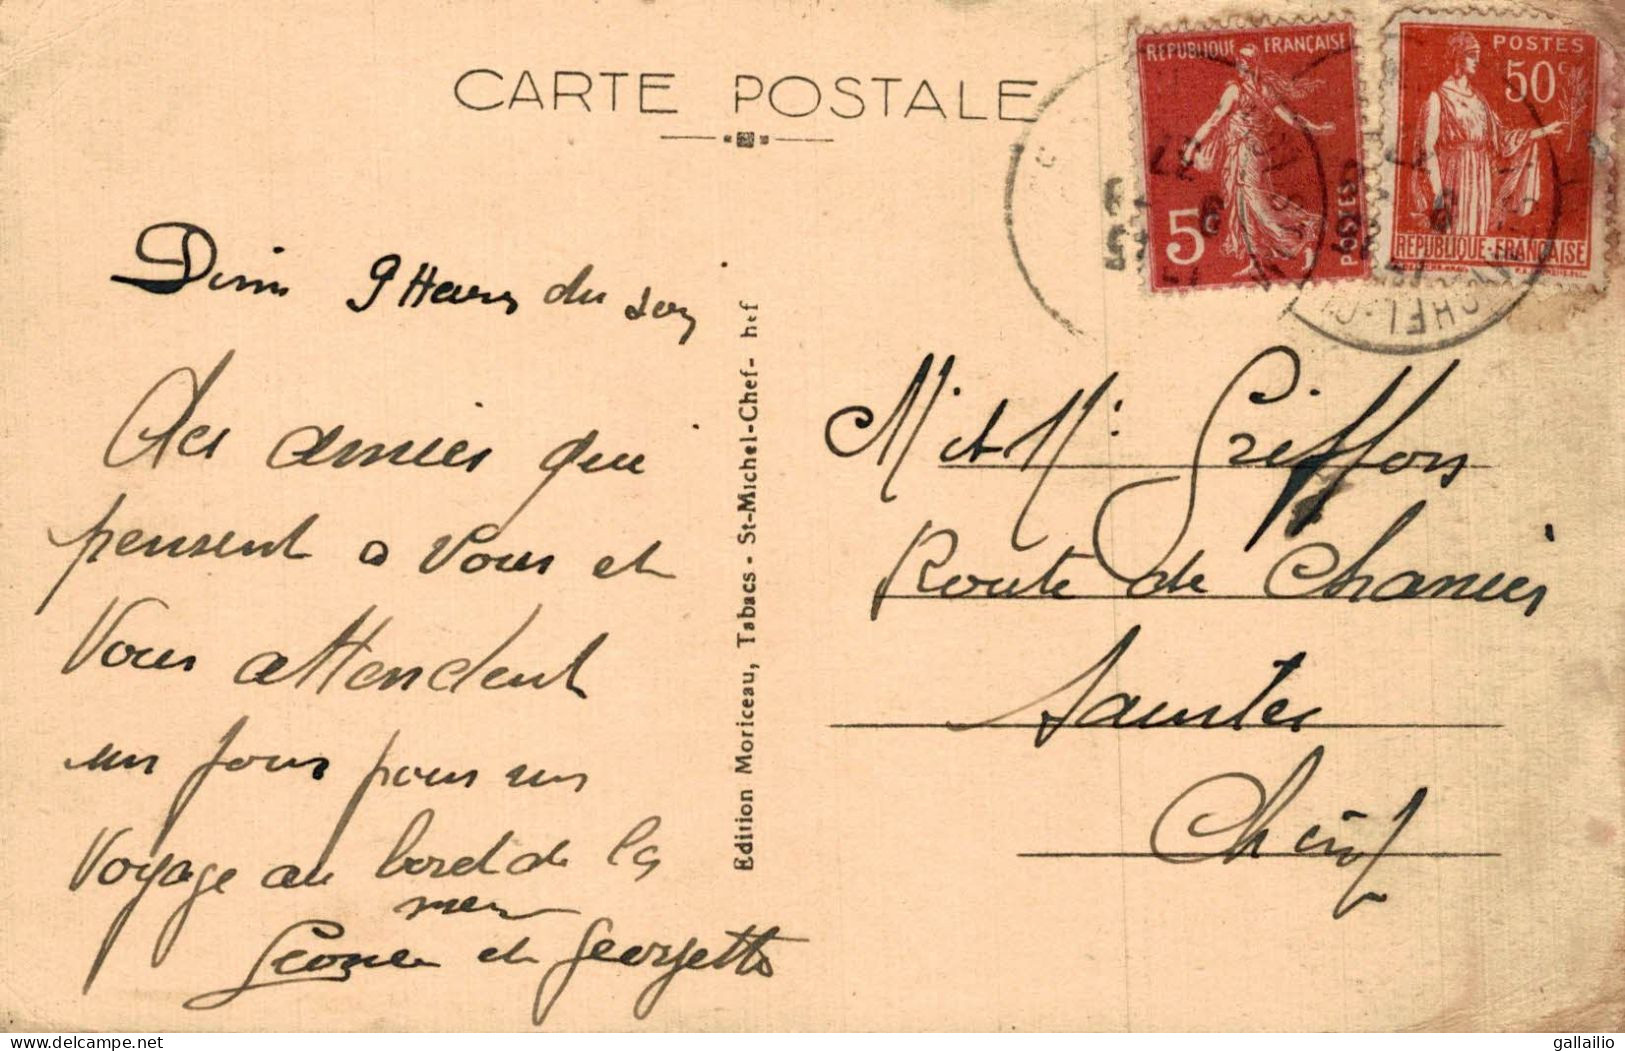 CARTE POSTALE
REPUBLIQUE FRANÇAISE
5c
POSTES
POSTES
50c
REPUBLIQUE·FRANÇAISE
37
9
CHEL-CH
Dim 9 Heures du soir
des amies qui
pensent a vous et
vous attendent
un jour pour un
voyage au bord de la
mer
Leone et Georgette
Edition Moriceau, Tabacs - St-Michel-Chef- hef
Mr et Me Griffon
Route de Chaniers
Saintes
Ch inf
gallailio